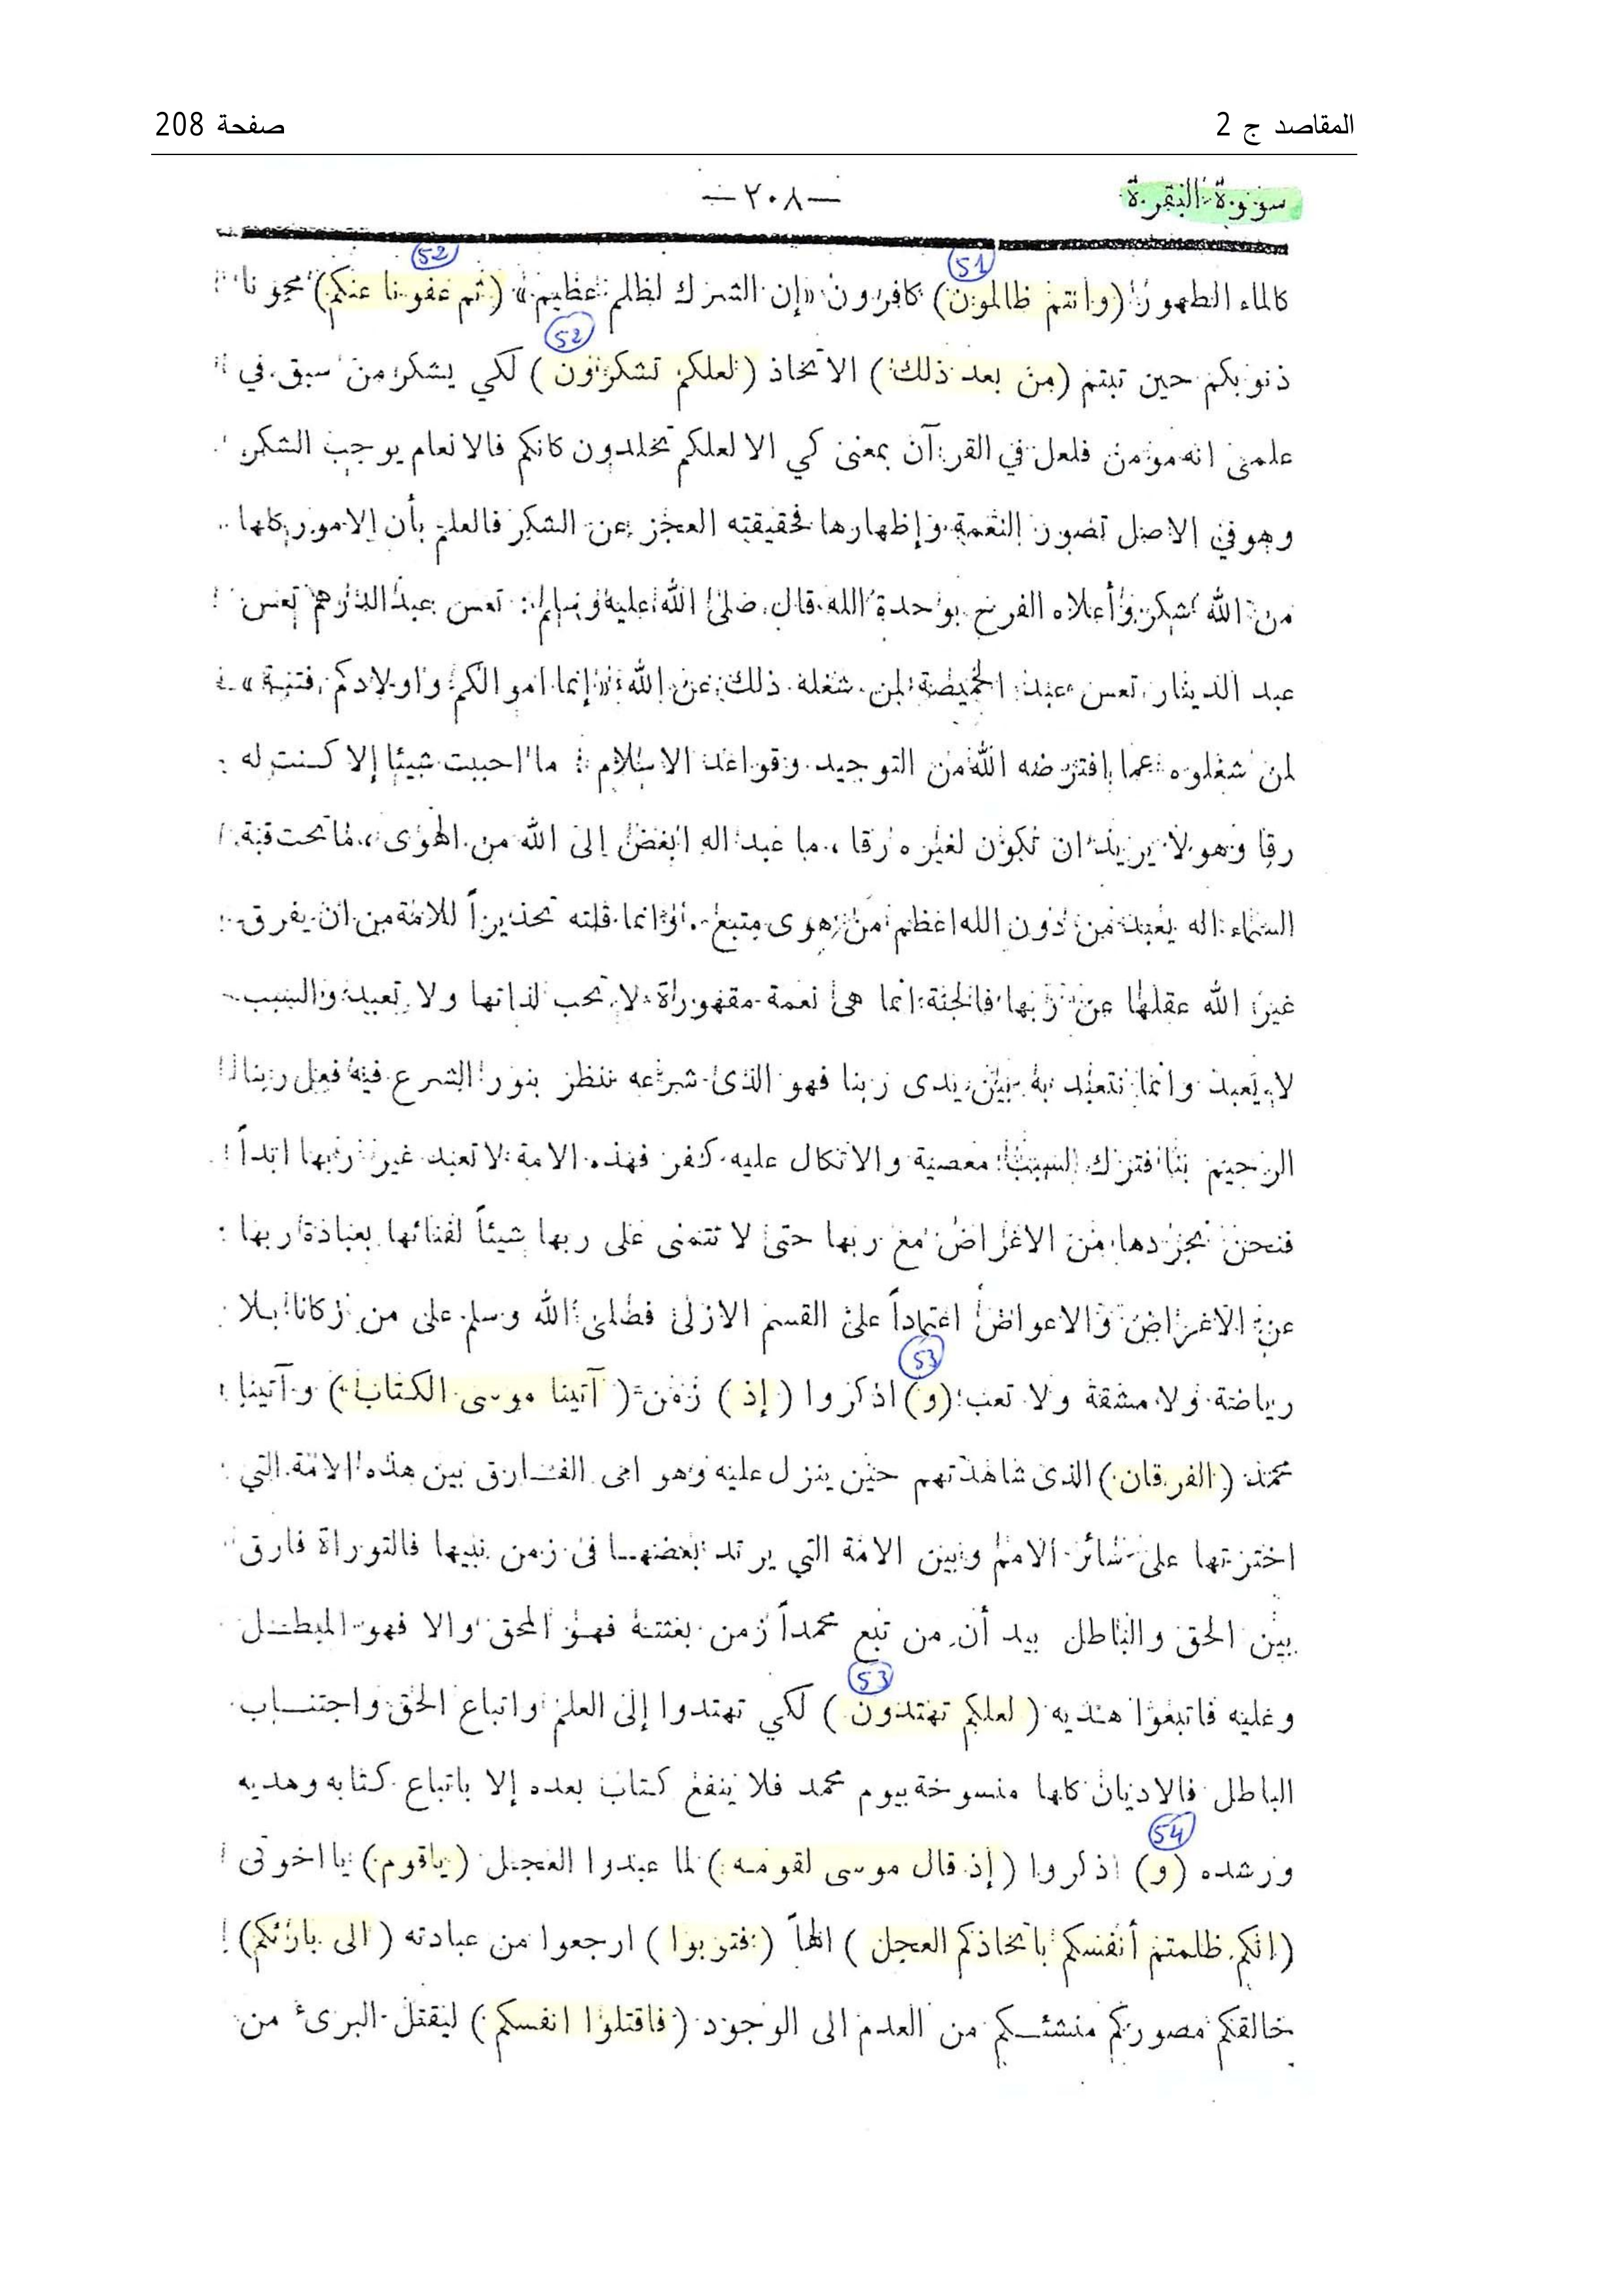 المقاصد ج 2
صفحة 208
سورة البقرة
—٢٠٨—
52
51
كالماء الطهور (وانتم ظالمون) كافرون «إن الشرك لظلم عظيم» (ثم عفونا عنكم) محونا
52
ذنوبكم حين تبتم (من بعد ذلك) الاتخاذ (لعلكم تشكرون) لكي يشكر من سبق في
علمى انه مؤمن فلعل في القرآن بمعنى كي الا لعلكم تخلدون كانكم فالانعام يوجب الشكر
وهو في الاصل تصور النعمة وإظهارها فحقيقته العجز عن الشكر فالعلم بأن الامور كلها
من الله شكر وأعلاه الفرح بوحدة الله قال صلى الله عليه وسلم: تعس عبد الدرهم تعس
عبد الدينار تعس عبد الخميصة لمن شغله ذلك عن الله «إنما اموالكم واولادكم فتنة»
لمن شغلوه عما افترضه الله من التوحيد وقواعد الاسلام: ما احببت شيئا إلا كنت له
رقا وهو لا يريد ان تكون لغيره رقا، ما عبد اله ابغض إلى الله من الهوى، ما تحت قبة
السماء اله يعبد من دون الله اعظم من هوى متبع. وانما قلته تحذيراً للامة من ان يفرق
غير الله عقلها عن ربها فالجنة انما هى نعمة مقهوراة لا تحب لذاتها ولا تعبد والسبب
لا يعبد وانما نتعبد به بين يدى ربنا فهو الذى شرعه ننظر بنور الشرع فيه فعل ربنا
الرحيم بنا فترك السبب معصية والاتكال عليه كفر فهذه الامة لا تعبد غير ربها ابداً
فنحن نجردها من الاغراض مع ربها حتى لا تتمنى على ربها شيئاً لفنائها بعبادة ربها
عن الاغراض والاعواض اعتماداً على القسم الازلى فصلى الله وسلم على من زكانا بلا
53
رياضة ولا مشقة ولا تعب (و) اذكروا (إذ) زمن (آتينا موسى الكتاب) وآتينا
محمد (الفرقان) الذى شاهدتهم حين ينزل عليه وهو امى الفارق بين هذه الامة التي
اخترتها على سائر الامم وبين الامة التي يرتد بعضها فى زمن نبيها فالتوراة فارق
بين الحق والباطل بيد أن من تبع محمداً زمن بعثته فهو المحق والا فهو المبطل
53
وعليه فاتبعوا هديه (لعلكم تهتدون) لكي تهتدوا إلى العلم واتباع الحق واجتناب
الباطل فالاديان كلها منسوخة بيوم محمد فلا ينفع كتاب بعده إلا باتباع كتابه وهديه
54
ورشده (و) اذكروا (إذ قال موسى لقومه) لما عبدوا العجل (ياقوم) يا اخوتى
(انكم ظلمتم أنفسكم باتخاذكم العجل) الهاً (فتوبوا) ارجعوا من عبادته (الى بارئكم)
خالقكم مصوركم منشئكم من العدم الى الوجود (فاقتلوا انفسكم) ليقتل البرىء من